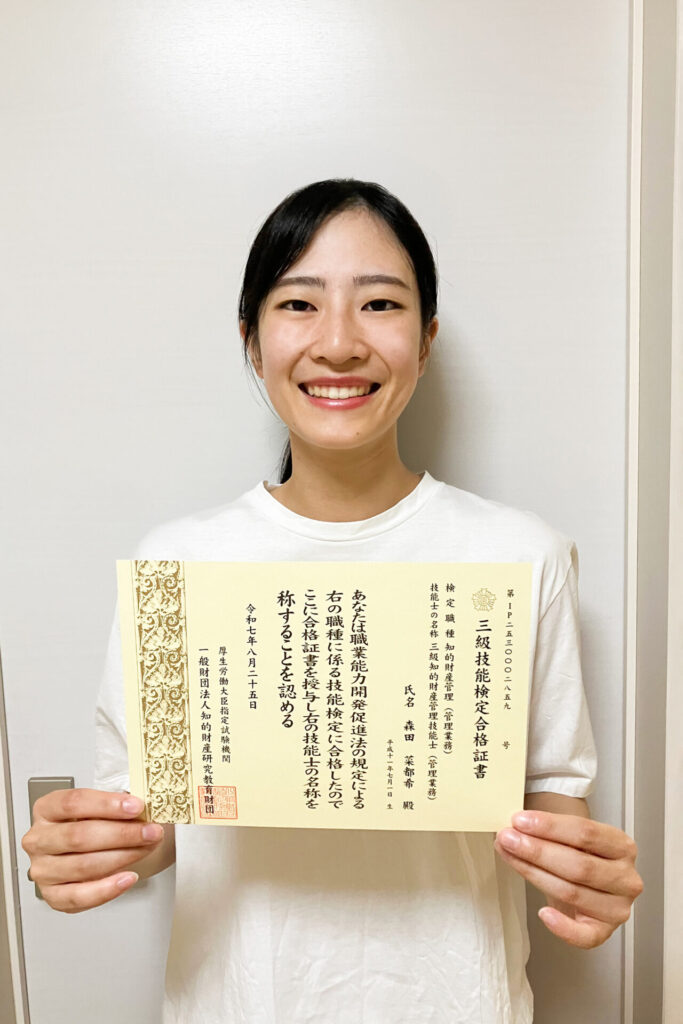 第IP二五三〇〇〇二八五九 号
三級技能検定合格証書
検定職種 知的財産管理（管理業務）
技能士の名称 三級知的財産管理技能士（管理業務）
氏名 森田 菜都希 殿
平成十一年七月一日 生
あなたは職業能力開発促進法の規定による
右の職種に係る技能検定に合格したので
ここに合格証書を授与し右の技能士の名称を
称することを認める
令和七年八月二十五日
厚生労働大臣指定試験機関
一般財団法人知的財産研究教育財団